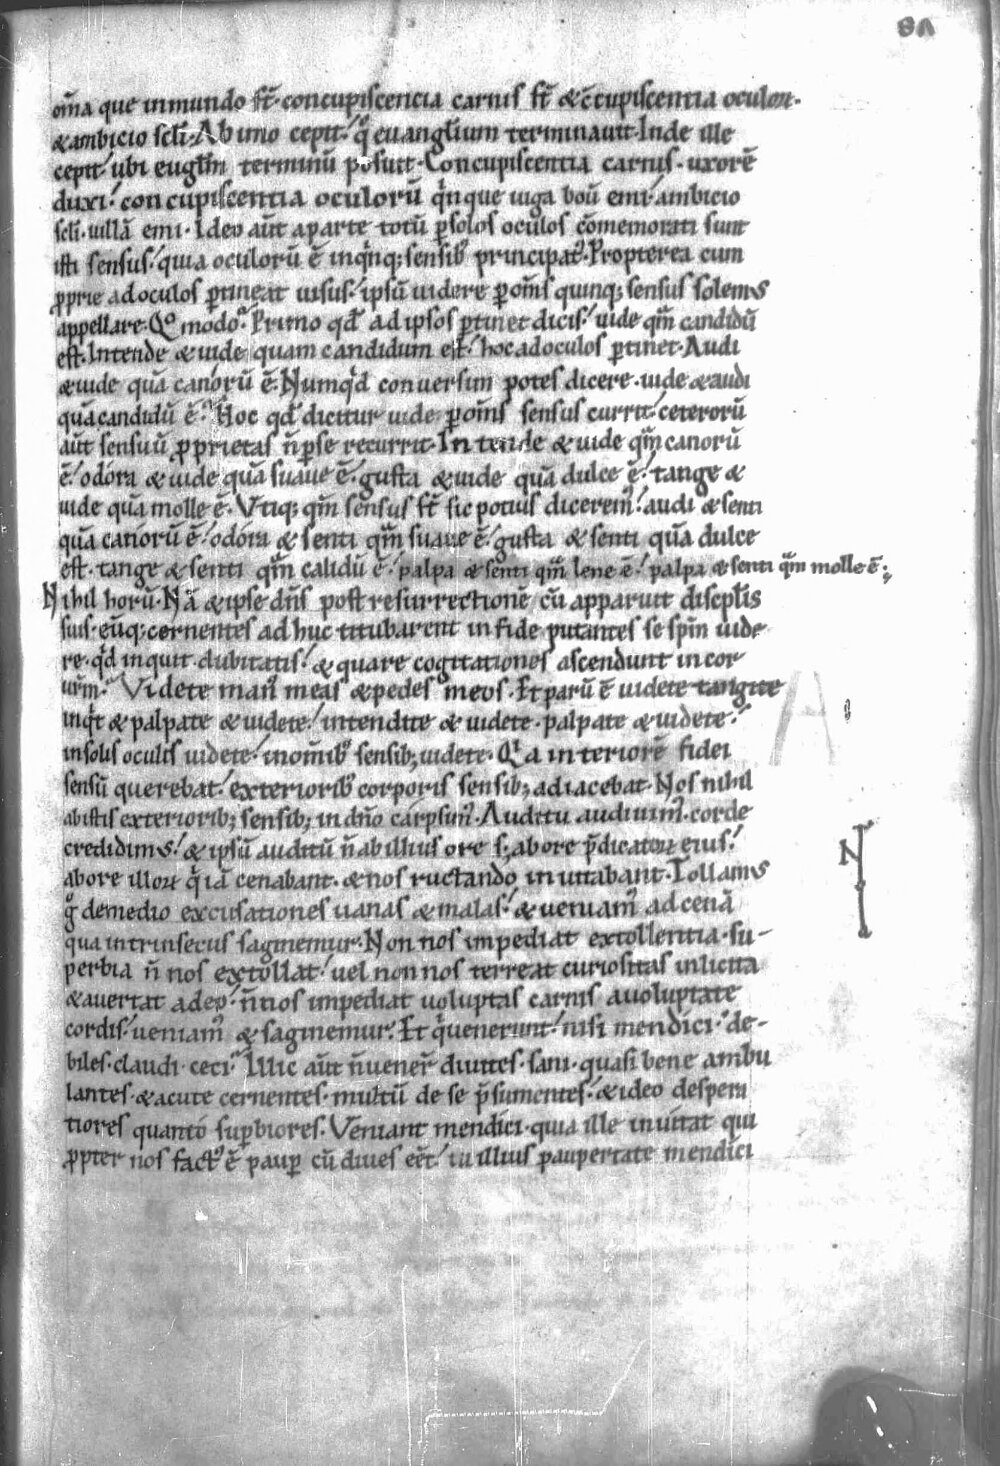 om̄a que inmundo st̄·concupiscencia carnis st̄ &c̄cupiscentia oculoꝝ·
&ambicio scl̄i·Ab imo cepit·ꝙ euanglium terminauit·Inde ille
cepit·ubi euglm̄ terminū posuit·Concupiscentia carnis·uxorē
duxi·concupiscentia oculorū q̇nque iuga boū emi·ambicio
scl̄i·uillā emi·Ideo aūt aparte totū ꝑsolos oculos c̄omemorati sunt
isti sensus·quia oculorū ē inq̇nq; sensib᷒ principat᷒·Propterea cum
ꝓprie adoculos ꝑtineat uisus·ipsū uidere ꝑom̄s quinq; sensus solem᷒
appellare·Qͦ modo·Primo qd̄ adipsos ꝑtinet dicis·uide qm̄ candidū
est·Intende &uide quam candidum est·hocadoculos ꝑtinet·Audi
&uide quā canorū ē·Numqd̄ conuersim potes dicere·uide &audi
quācandidū ē·Hoc qd̄ dicitur uide ꝑom̄s sensus currit·ceterorū
aūt sensuū ꝓprietas n̄ꝑse recurrit·Intende &uide qm̄ canorū
ē·odora &uide quā suaue ē·gusta &uide quā dulce ē·tange &
uide quā molle ē·Vtiq; qm̄ sensus st̄ sic potius dicerem᷒·audi &senti
quā canorū ē·odora & senti qm̄ suaue ē·gusta & senti quā dulce
est·tange & senti qm̄ calidū ē·palpa &senti qm̄ lene ē·palpa &senti qm̄ molle ē·
Nihil horū·Nā &ipse dn̄s post resurrectionē cū apparuit discpl̄is
suis·eūq; cernentes adhuc titubarent infide putantes se spm̄ uide
re·qd̄ inquit·dubitatis·&quare cogitationes ascendunt incor
ur̄m·Videte man᷒ meas &pedes meos·Et parū ē uidete tangite
inqt &palpate &uidete·intendite &uidete·palpate &uidete·
insolis oculis uidete·inom̄ib᷒ sensib; uidete·Qia interiorē fidei
sensū querebat·exteriorib᷒ corporis sensib; adiacebat·Nos nihil
abistis exteriorib; sensib; in dn̄o carpsim᷒·Auditu audiuim᷒·corde
credidim᷒·&ipsū auditū n̄abillius ore s; abore p̄dicatoꝝ eius·
abore illoꝝ q̇ iā cenabant·&nos ructando inuitabant·Tollam᷒
g̊ demedio excusationes uanas &malas·&ueniam᷒ adcenā
qua intrinsecus saginemur·Non nos impediat extollentia·su-
perbia n̄ nos extollat·uel non nos terreat curiositas inlicita
&auertat adeo·n̄nos impediat uoluptas carnis auoluptate
cordis·ueniam᷒ &saginemur·Et q̇uenerunt·nisi mendici·de-
biles·claudi·ceci·Illic aūt n̄uener̄ diuites·sani·quasi bene ambu
lantes·&acute cernentes·multū de se p̄sumentes·&ideo despera
tiores quanto suꝑbiores·Veniant mendici·quia ille inuitat qui
ꝓpter nos fact᷒ ē pauꝑ cū diues eēt·ut illius paupertate mendici